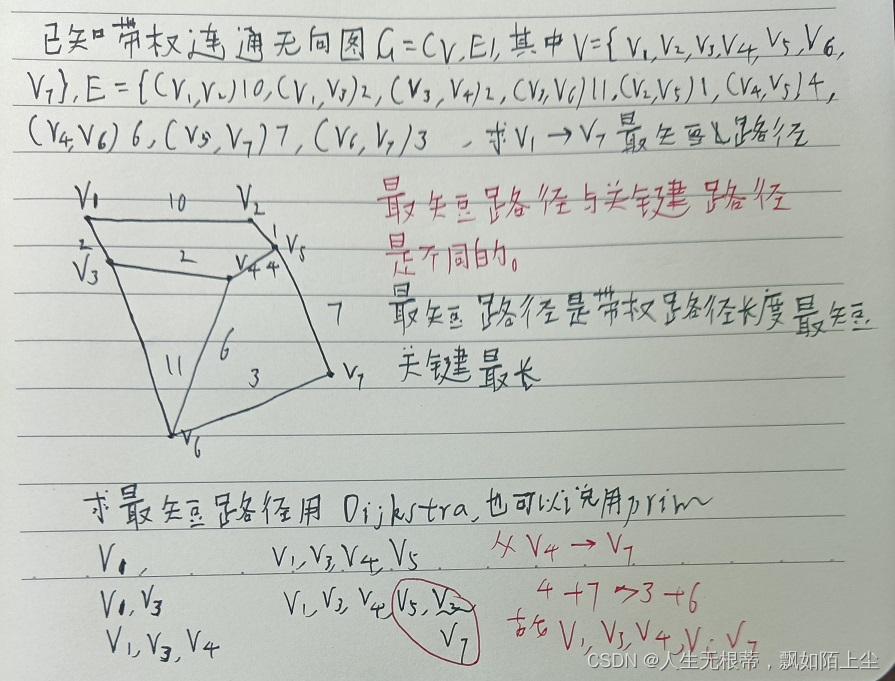 已知带权连通无向图G=(V,E),其中V={V1,V2,V3,V4,V5,V6,
V7},E={(V1,V2)10,(V1,V3)2,(V3,V4)2,(V3,V6)11,(V2,V5)1,(V4,V5)4,
(V4,V6)6,(V5,V7)7,(V6,V7)3,求V1→V7最短路径
V1 10 V2
2 V3 2 V4 4 1 V5
11 6 3 7 V7
V6
最短路径与关键建路径
是不同的。
最短路径是带权路径长度最短
关键最长
求最短路径用Dijkstra,也可以说用prim
V1, V1,V3,V4,V5
V1,V3 V1,V3,V4,V5,V2
V7
V1,V3,V4
从V4→V7
4+7>3+6
故 V1,V3,V4,V6 V7
CSDN @人生无根蒂,飘如陌上尘